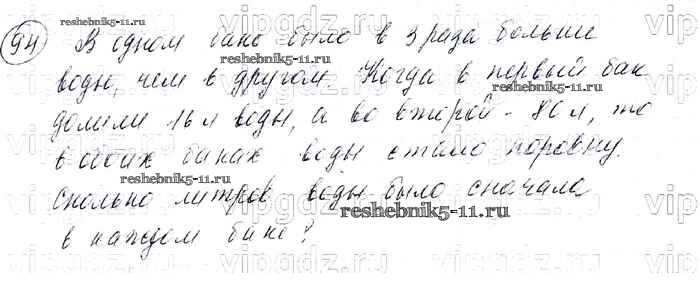 94 В одном баке было в 3 раза больше
воды, чем в другом. Когда в первый бак
долили 16 л воды, а во второй - 80 л, то
в обоих баках воды стало поровну.
Сколько литров воды было сначала
в каждом баке?
reshebnik5-11.ru
reshebnik5-11.ru
reshebnik5-11.ru
reshebnik5-11.ru
reshebnik5-11.ru
vipgdz.ru
vipgdz.ru
vipgdz.ru
vipgdz.ru